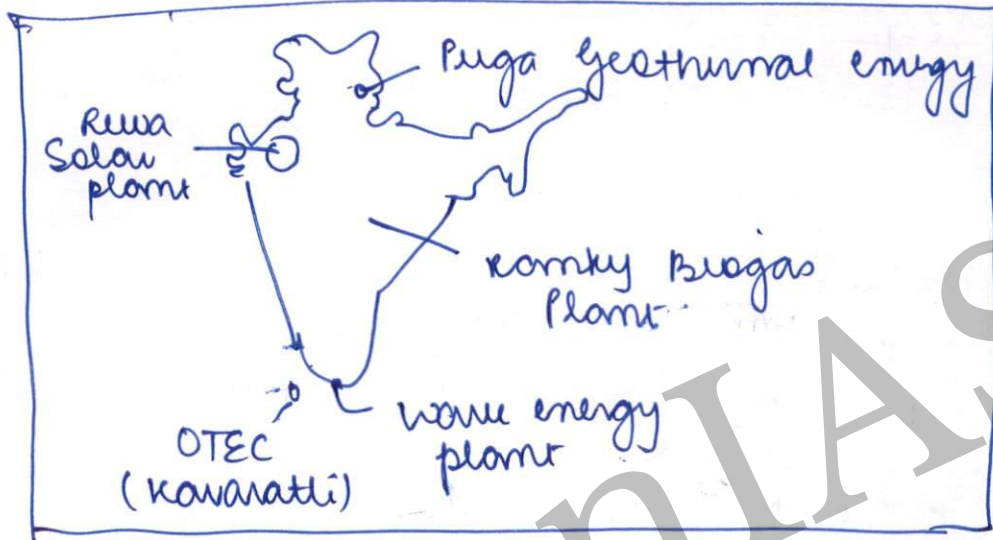 Puga Geothermal energy
Rewa
Solar
plant
Ramky Biogas
Plant
wave energy
plant
OTEC
(Kavaratti)
nIAS